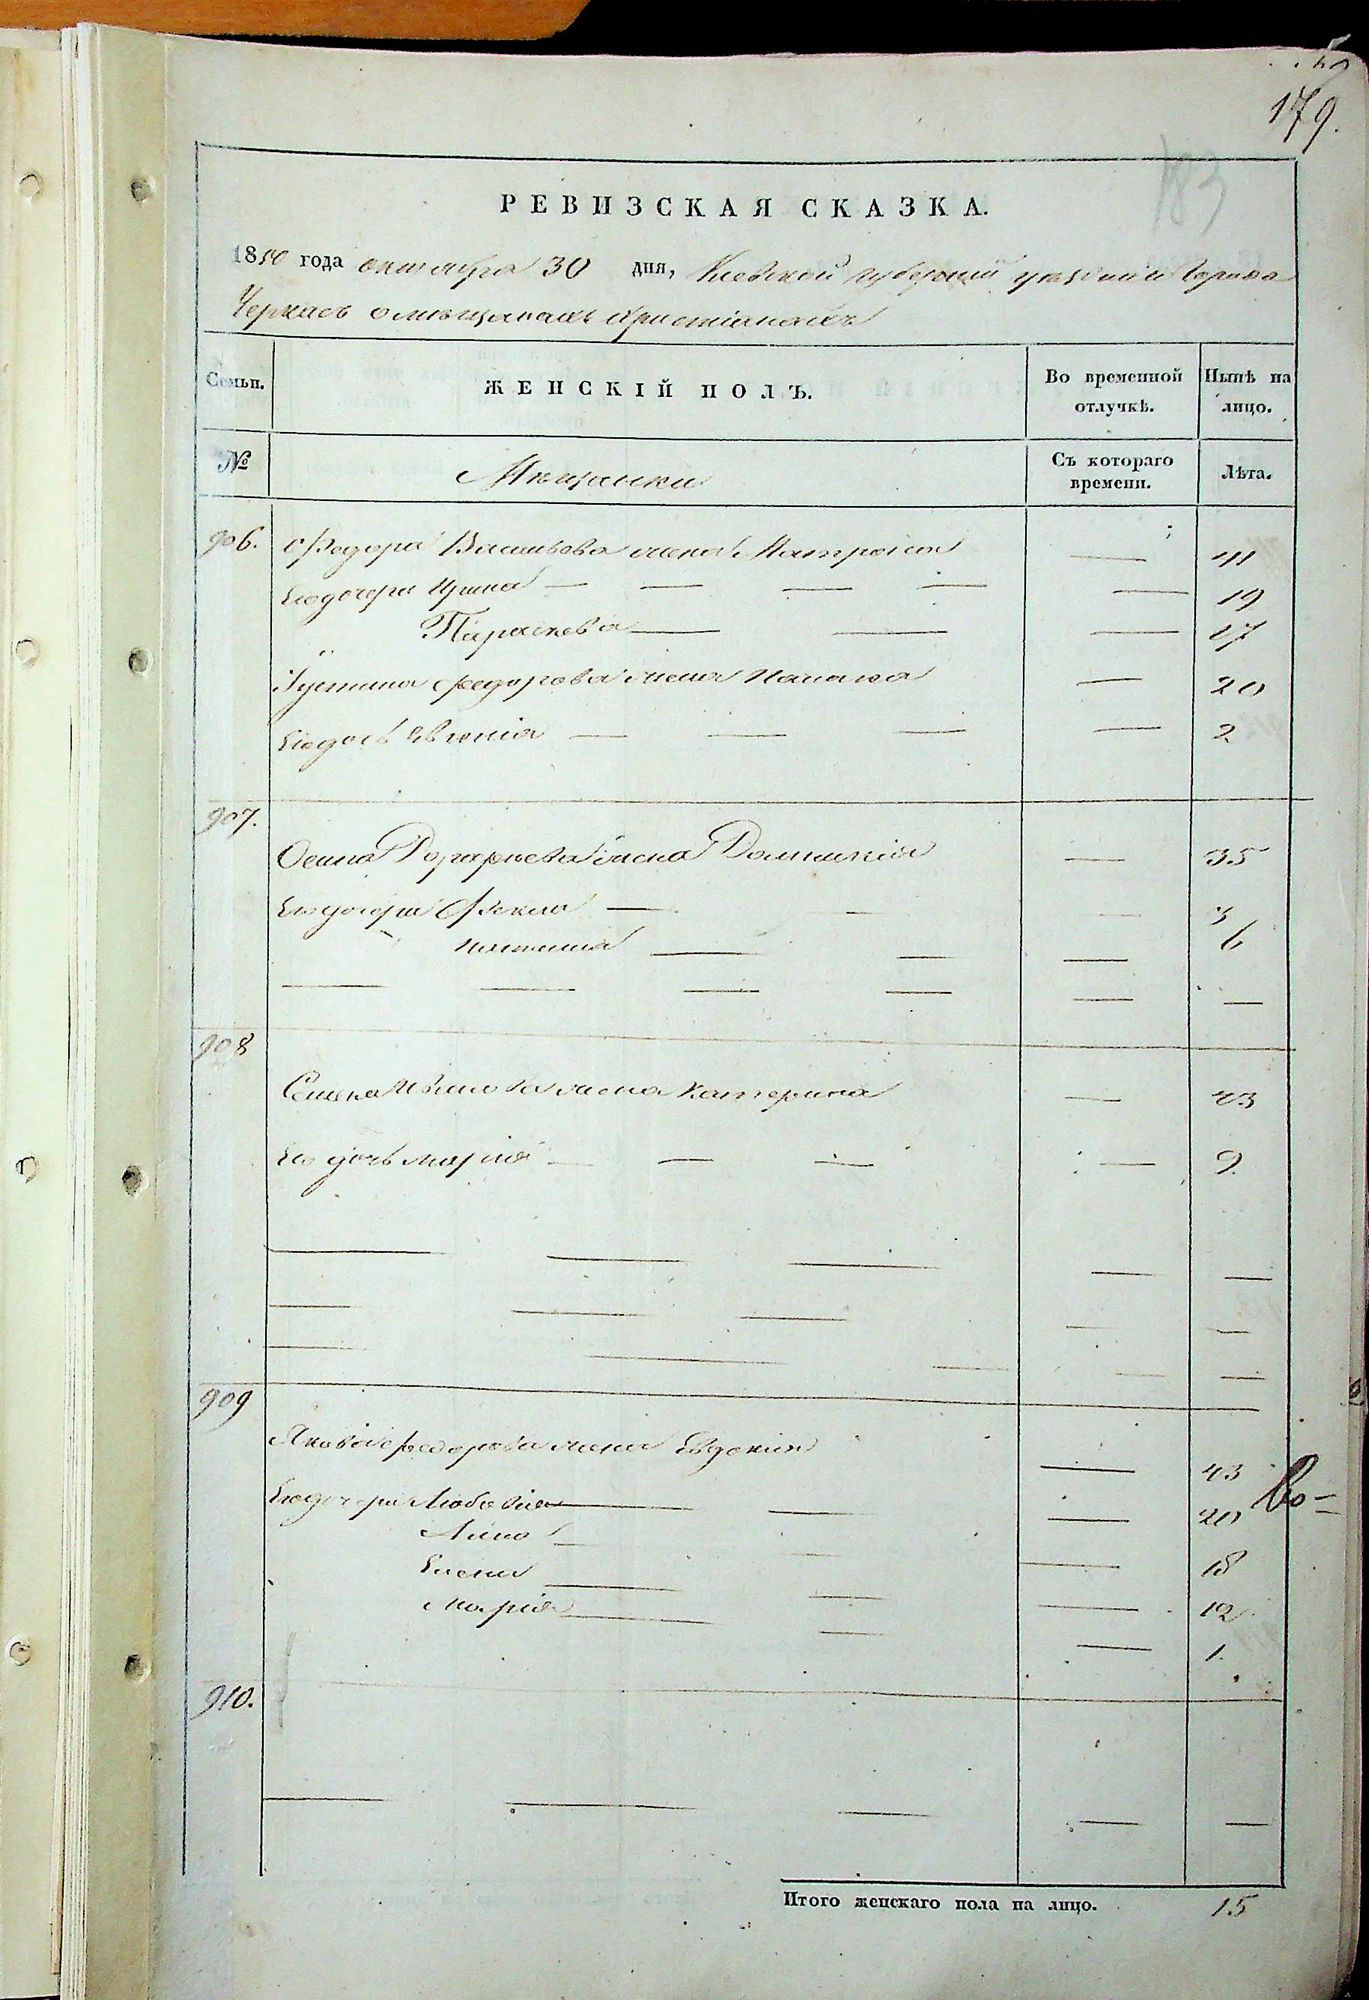 179.
183
РЕВИЗСКАЯ СКАЗКА.
1850 года октября 30 дня, Киевской губернии уездний города
Черкасъ о мещанахъ христіанахъ
Семьи. ЖЕНСКІЙ ПОЛЪ. Во временной отлучкѣ. Нынѣ на лицо.
№ Мещанки Съ котораго времени. Лѣта.
906. Федора Васильева жена Матрона — 41
Его дочери Ирина — — — — — 19
Параскева — — — 17
Іустина Федорова жена — 20
Его дочь Евгенія — — — — 2
907.
Осипа жена Домникія — 35
Его дочери Фекла — — — 3
— — — 6
— — — — — —
908
Семена жена Катерина — 43
Его дочь Марія — — — — 9
— — — — —
— — — — —
— — — — —
909
Якова Федорова жена Евдокія — 43
Его дочери Любовія — — — 20
Анна — — — 18
Елена — — — 12
Марія — — — 1.
910.
— — — — —
Итого женскаго пола на лицо. 15